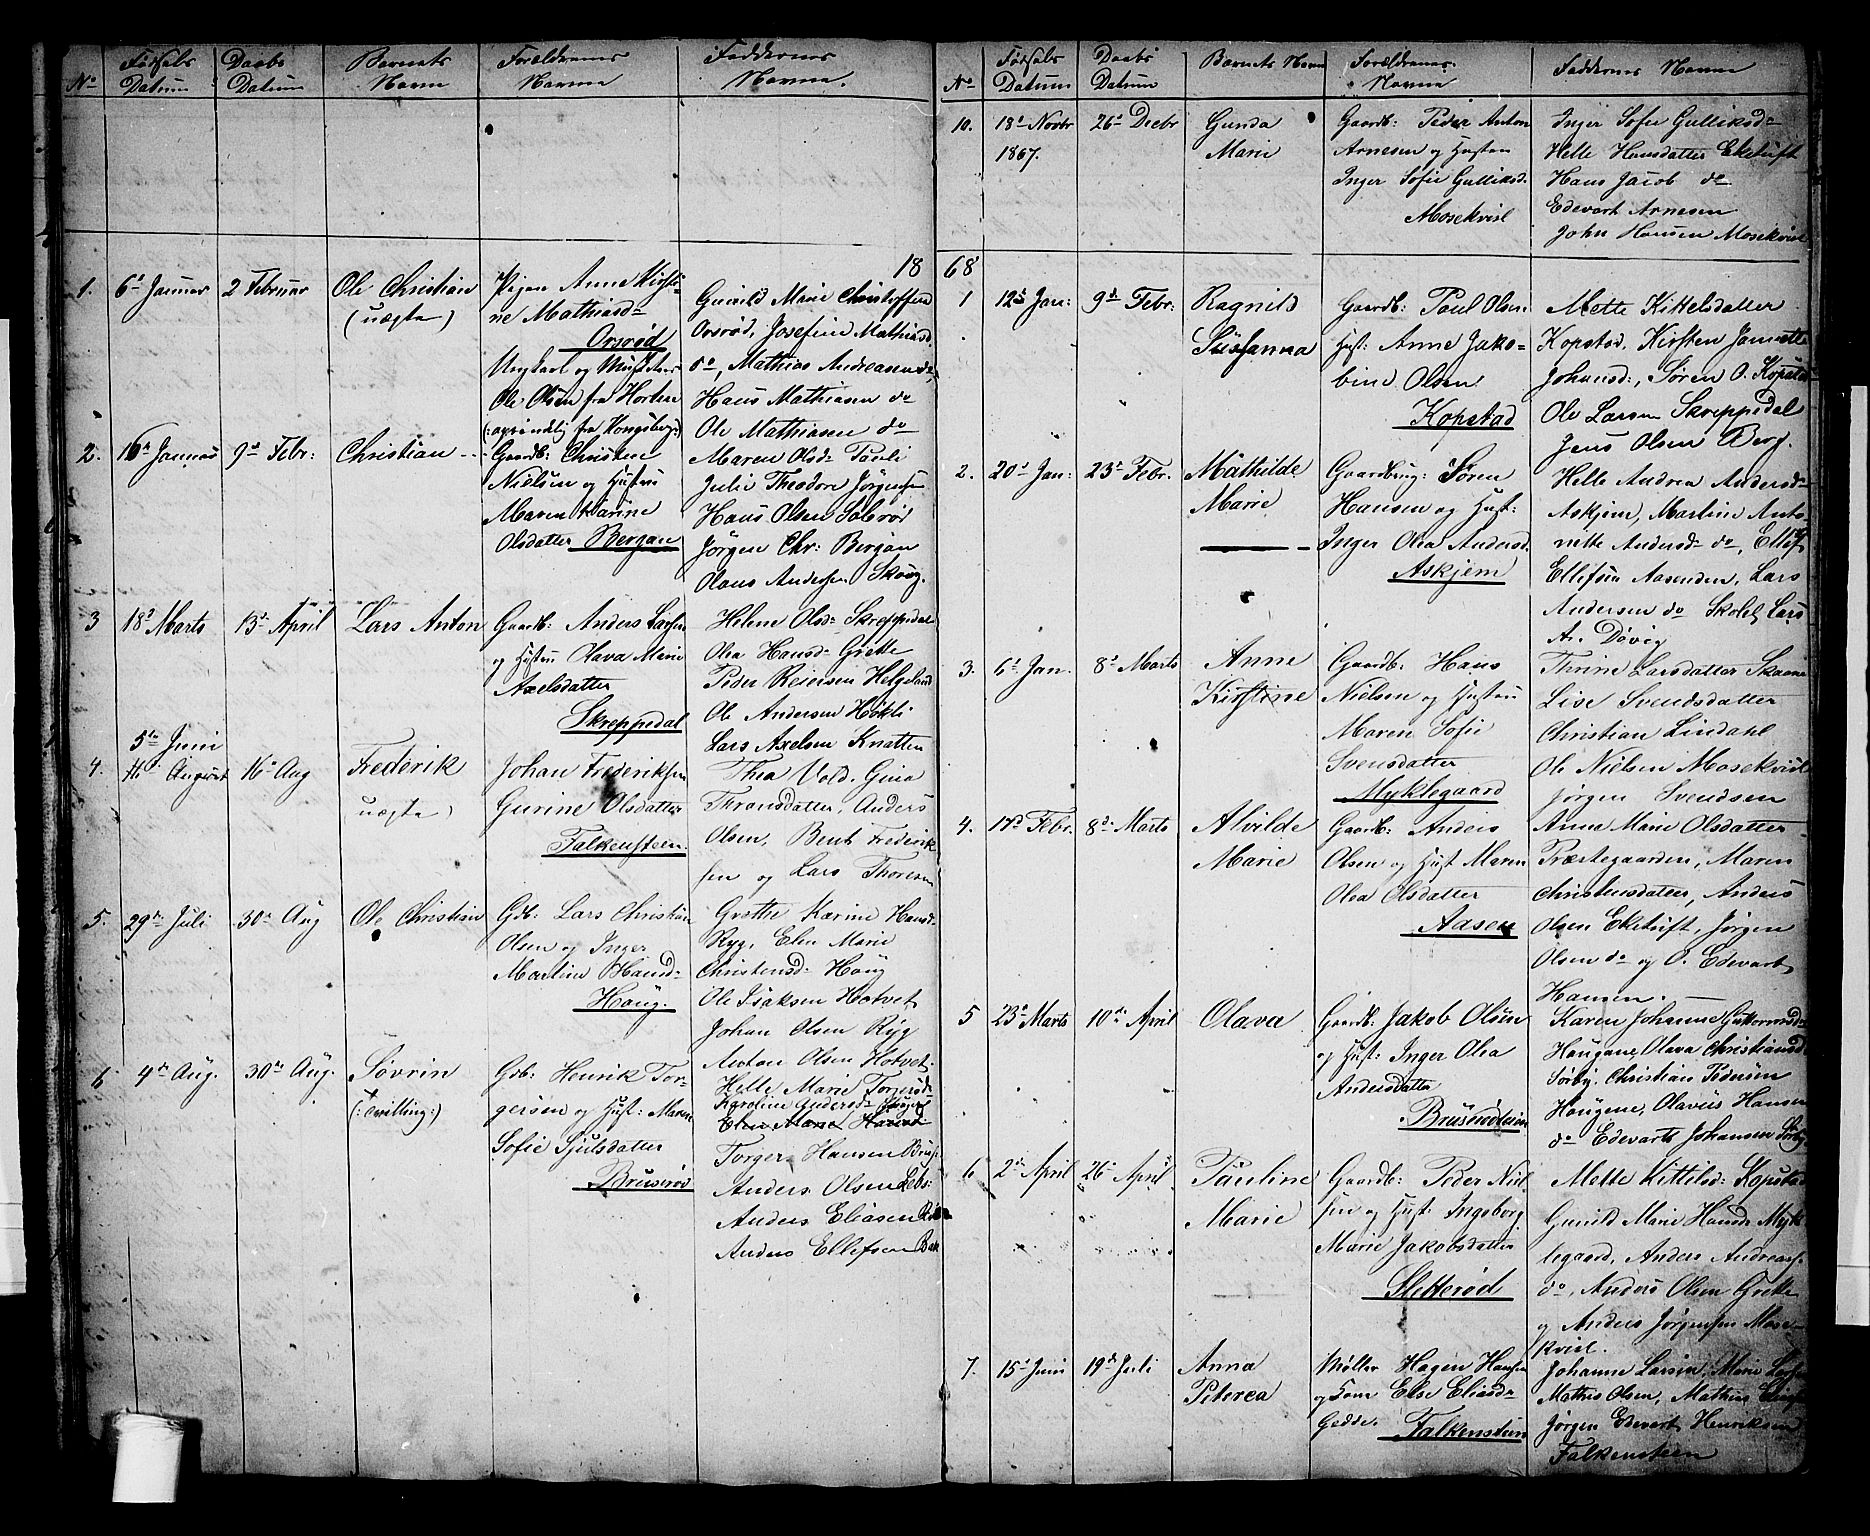 No
Fødsels
Datum
Daabs
Datum
Barnets
Navn
Forældrenes
Navne
Faddernes
Navne.
18
1.
6te Januar
2 Februar
Ole Christian
(uægte)
Pigen Anne Kirsti-
ne Mathiasd-
Orsrød
Ungkarl og
Ole Olsen fra Horten
(: oprindelig fra Kongsberg:)
Gunild Marie Christoffersen
Orsrød, Josefine Mathiasd.
do, Mathias Andreasen do,
Hans Mathiasen do
Ole Mathiasen do
2.
16de Januar
9de Febr:
Christian
Gaardb: Christen
Nielsen og Hustru
Maren Karine
Olsdatter Bergan
Maren Olsd- Pauli
Julie Theodore Jørgensen
Hans Olsen Solerød
Jørgen Chr: Bergan
Olaus Andersen Skoug.
3
18de Marts
13de April
Lars Anton
Gaardb: Anders Larsen
og Hustru Olava Marie
Axelsdatter
Skreppedal
Helene Olsd- Skreppedal
Olea Hansd- Grette
Peder Reiersen Helgeland
Ole Andersen Høkli
Lars Axelsen Knatten
4.
5te Juni
August
16de Aug
Frederik
uægte)
Johan Frederiksen
Gurine Olsdatter
Falkensteen.
Thea Vold. Gina
Thronsdatter, Anders
Olsen, Bent Frederik
sen og Lars Thoresen
5.
29de Juli
30de Aug
Ole Christian
Gdb: Lars Christian
Olsen og Inger
Martine Hansd-
Houg.
Grethe Karine Hansd-
Ryg, Elen Marie
Christensd- Houg
Ole Isaksen Hotvet
Johan Olsen Ryg
Anton Olsen Hotvet.
6
4de Aug.
30de Aug.
Søvrin
(:Tvilling:)
Gdb: Henrik Tor-
gersen og Hust: Maren
Sofie Sjulsdatter
Brusrød
Helle Marie
Karoline Andersd-
Elen Marie
Torger Hansen
Anders Olsen
Anders Eliasen
Anders Ellefsen
No
Fødsels
Datum
Daabs
Datum
Barnets Navn
Forældrenes
Navne
Faddernes Navne
10.
18de Novbr
1867.
26de Decbr
Gunda
Marie
Gaardb: Peder Anton
Arnesen og Hustru
Inger Sofie Gulliksd.
Mosekvisl
Inger Sofie Gulliksd-
Helle Hansdatter Eketuft
Hans Jacob do
Edevart Arnesen
John Hansen Mosekvisl
68
1
12te Jan:
9de Febr:
Ragnild
Susanna
Gaardb: Paul Olsen
Hust: Anne Jako-
bine Olsen
Kopstad
Mette Kittelsdatter
Kopstad, Kirsten Jannette
Johansd:, Søren O. Kopstad
Ole Larsen Skreppedal
Jens Olsen Berg.
2.
20de Jan:
23de Febr.
Mathilde
Marie
Gaardbrug: Søren
Hansen og Hust:
Inger Olea Andersd.
Askjem
Helle Andrea Andersd-
Askjem, Martine Anto-
nette Andersd- do, Ellef
Ellefsen Aasenden, Lars
Andersen do Skolel. Lars
A. Døvig
3.
6te Jan.
8de Marts
Anne
Kirstine
Gaardb: Hans
Nielsen og Hustru
Maren Sofie
Svensdatter
Myklegaard
Thrine Larsdatter Skaane
Lise Svendsdatter
Christian Lindahl
Ole Nielsen Mosekvisl
Jørgen Svendsen
4.
17de Febr.
8de Marts
Alvilde
Marie
Gaardb: Anders
Olsen og Hust Maren
Olea Olsdatter
Aasen
Anna Marie Olsdatter
Præstegaarden, Maren
Christensdatter, Anders
Olsen Eketuft, Jørgen
Olsen do og O. Edevart
Hansen.
5
23de Marts
10de April
Olava
Gaardb: Jakob Olsen
og Hust: Inger Olea
Andersdatter
Karen Johanne
Hougane, Olava Christiansd.
Sørby, Christian Pedersen
Hougene, Olavus Hansen
do Edevarts Johansen Sørby
6
2de April
26de April
Pauline
Marie
Gaardb: Peder Niel
sen og Hust: Ingeborg
Marie Jakobsdatter
Sletterød
Mette Kittilsd: Kopstad
Gunild Marie Hansd- Myk
legaard, Anders Andreass.
do, Anders Olsen Grette
og Anders Jørgensen Mose-
kvisl.
7.
15de Juni
19de Juli
Anna
Peterea
Møller Hagen Hansen
og Else Eliasd-
Gedde.
Falkensteen
Johanne Larsen, Marie
Mathis Olsen, Mathias
Jørgen Edevart Henriksen
Falkensteen